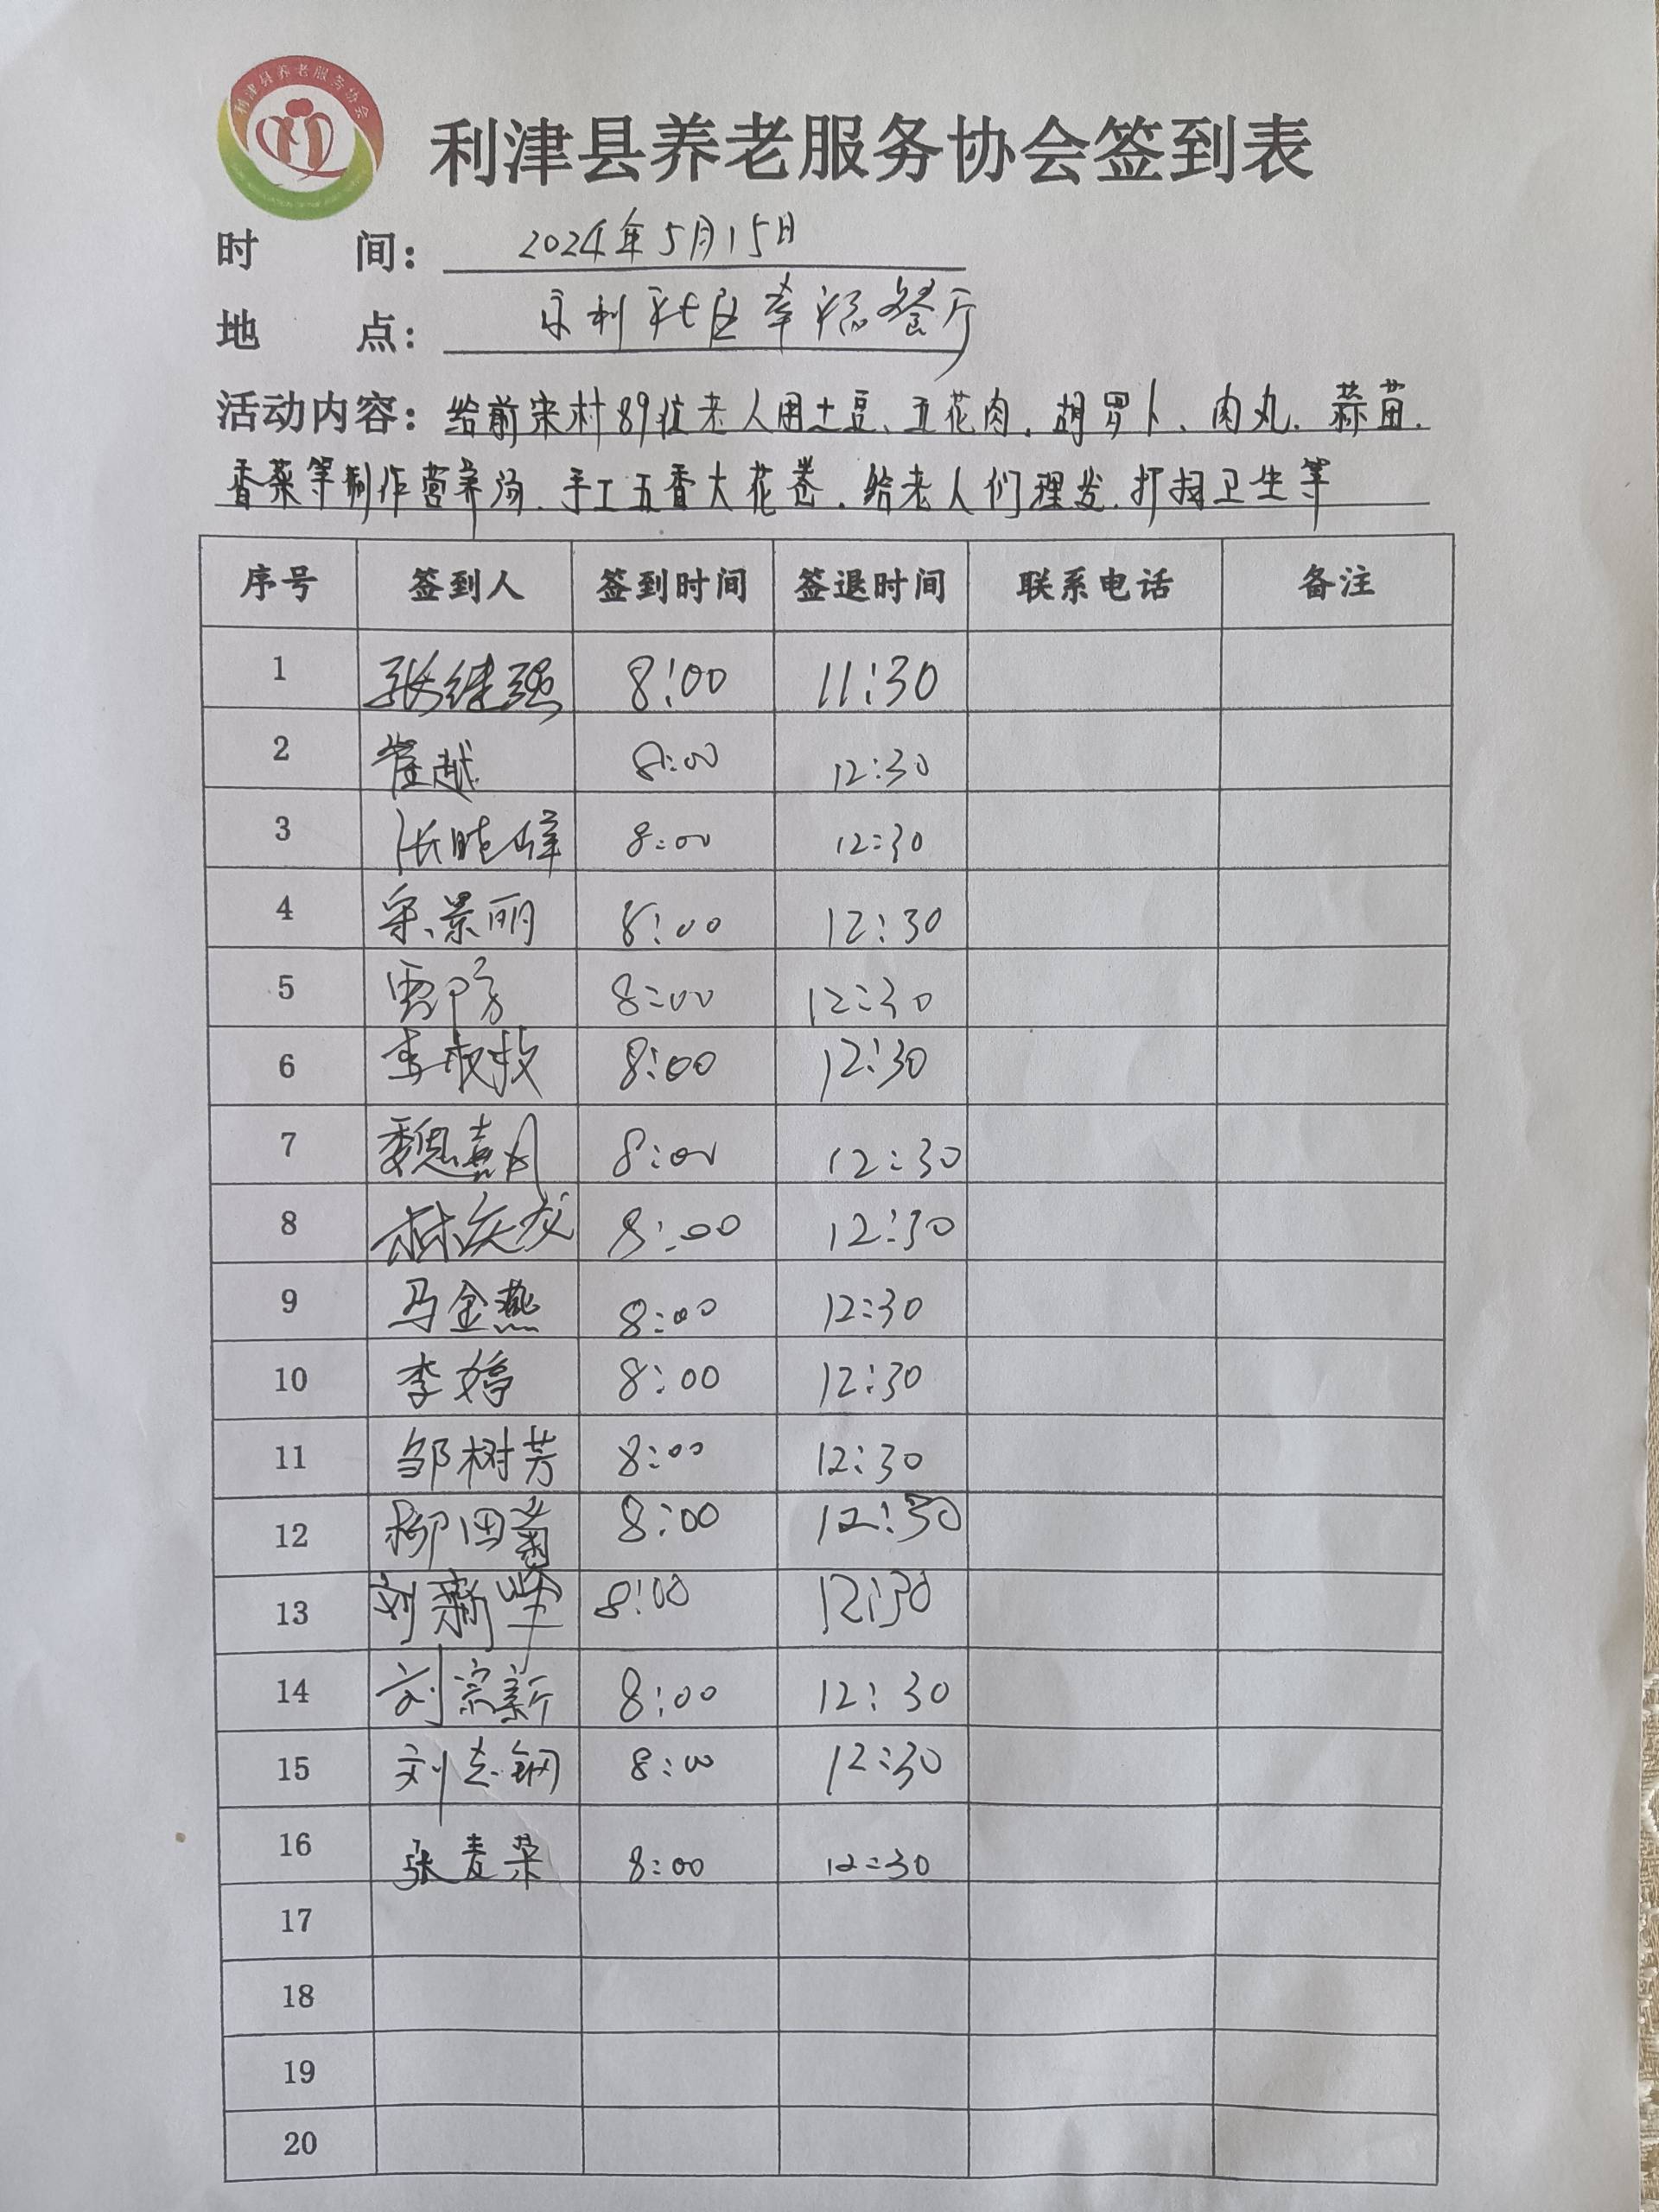 利津县养老服务协会
利津县养老服务协会签到表
时 间：2024年5月15日
地 点：永利社区幸福餐厅
活动内容：给前宋村89位老人用土豆、五花肉、胡罗卜、肉丸、蒜苗、
香菜等制作营养汤、手工五香大花卷、给老人们理发、打扫卫生等
序号 签到人 签到时间 签退时间 联系电话 备注
1 张继强 8:00 11:30
2 崔越 8:00 12:30
3 张晓峰 8:00 12:30
4 宋景丽 8:00 12:30
5 8:00 12:30
6 李 8:00 12:30
7 魏 8:00 12:30
8 林 8:00 12:30
9 马金燕 8:00 12:30
10 李婷 8:00 12:30
11 邹树芳 8:00 12:30
12 柳田菊 8:00 12:30
13 刘新峰 8:00 12:30
14 刘宗新 8:00 12:30
15 刘志钢 8:00 12:30
16 张麦荣 8:00 12:30
17
18
19
20